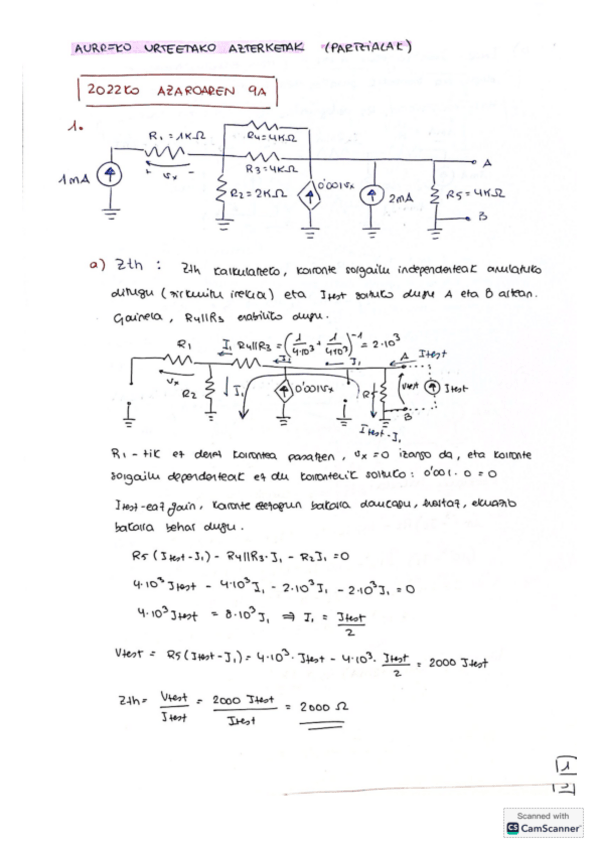 AURREKO URTEETAKO AZTERKETAK (PARTZIALAK)
2022KO AZAROAREN 9A
1.
R1 = 1KΩ
R4 = 4KΩ
R3 = 4KΩ
1mA
+ Vx -
R2 = 2KΩ
0'001Vx
2mA
R5 = 4KΩ
A
B
a) Zth : Zth kalkulatzeko, korronte sorgailu independenteak anulatuko
ditugu (zirkuitu irekia) eta Itest sartuko dugu A eta B artean.
Gainera, R4||R3 erabiliko dugu.
R1
I1 R4||R3 = (1/4·10³ + 1/4·10³)⁻¹ = 2·10³
I1
I1
A
Itest
Vx
R2
I1
0'001Vx
R5
Vtest
Itest
B
Itest - I1
R1 -tik ez denez korrontea pasatzen, Vx = 0 izango da, eta korronte
sorgailu dependenteak ez du korronterik sortuko : 0'001 · 0 = 0
Itest-eaz gain, korronte ezezagun bakarra daukagu, hortaz, ekuazio
bakarra behar dugu.
R5 (Itest - I1) - R4||R3 · I1 - R2 I1 = 0
4·10³ Itest - 4·10³ I1 - 2·10³ I1 - 2·10³ I1 = 0
4·10³ Itest = 8·10³ I1 ⇒ I1 = Itest/2
Vtest = R5 (Itest - I1) = 4·10³ · Itest - 4·10³ · Itest/2 = 2000 Itest
Zth = Vtest/Itest = 2000 Itest/Itest = 2000 Ω
1
Scanned with
CS CamScanner